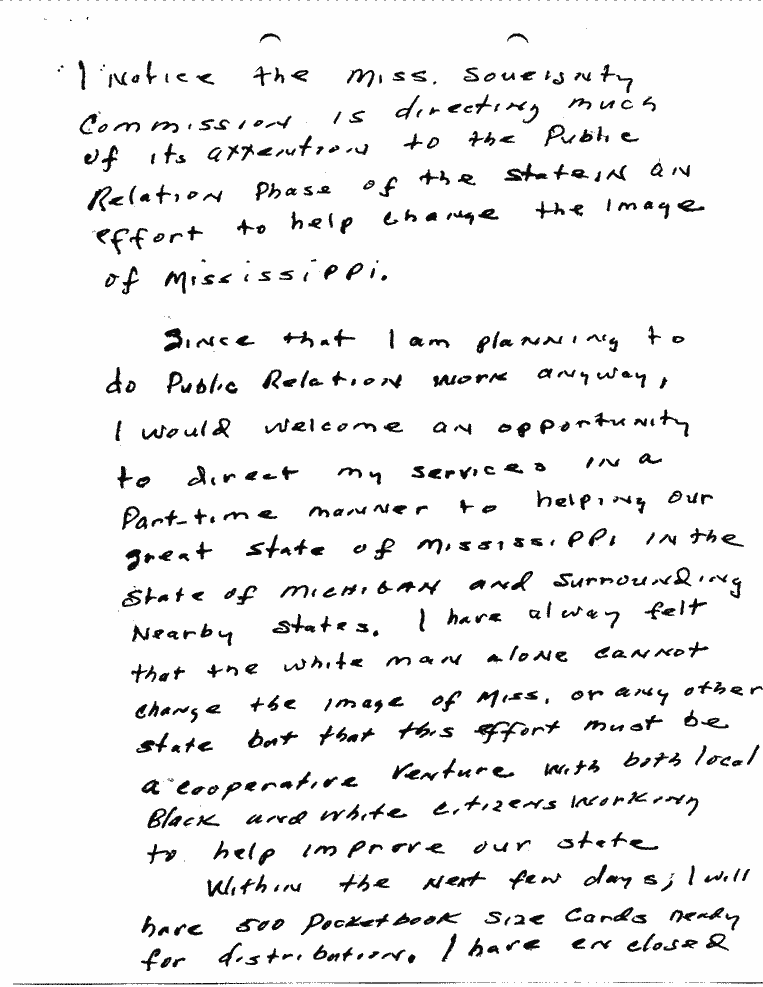 I Notice the Miss. Soueisnty
Commission is directing much
of its attention to the Public
Relation Phase of the state in an
effort to help change the image
of Mississippi.
Since that I am planning to
do Public Relation work anyway,
I would welcome an opportunity
to direct my services in a
Part-time manner to helping our
great state of Mississippi in the
State of Michigan and surrounding
Nearby states. I have alway felt
that the white man alone cannot
change the image of Miss. or any other
state but that this effort must be
a cooperative venture with both local
Black and white citizens working
to help improve our state
Within the next few days; I will
have 500 Pocketbook size Cards ready
for distribution. I have enclosed